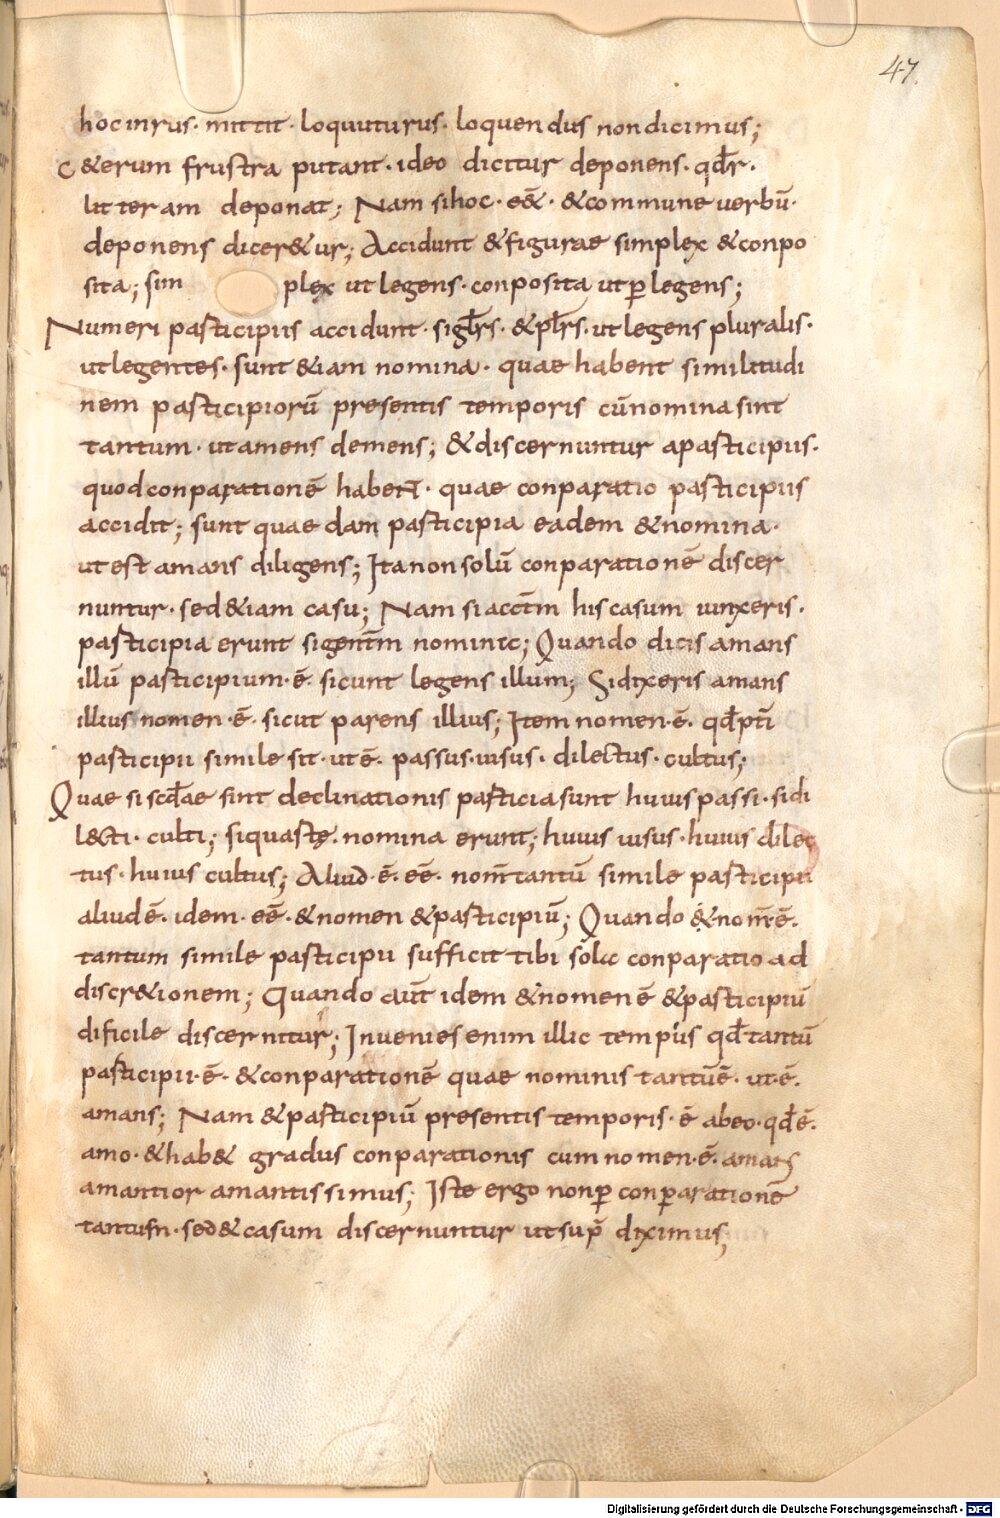 47.
hoc inrus· mittit· loquuturus· loquendus non dicimus;
C&erum frustra putant· ideo dicitur deponens· qđr·
litteram deponat; Nam si hoc· eē&· &commune uerbū·
deponens dicer&ur; Accidunt &figurae simplex &conpo
sita; sim plex ut legens· conposita ut ꝑlegens;
Numeri participiis accidunt· siglrs· &plrs· ut legens pluralis·
ut legentes· sunt &iam nomina· quae habent similitudi
nem participiorū presentis temporis cū nomina sint
tantum· ut amens demens; &discernuntur a participiis·
quod conparationē habent· quae conparatio participiis
accidit; sunt quae dam participia eadem &nomina·
ut est amans diligens; Ita non solū conparationē discer
nuntur· sed &iam casu; Nam si acctm his casum iunxeris·
participia erunt si gentm nominte; Quando dicis amans
illū participium· ē· sicunt legens illum; Si dixeris amans
illius nomen· ē· sicut parens illius; Item nomen· ē· qđ ptī
participii simile sit· ut ē· passus· uisus· dilectus· cultus;
Quae si scđae sint declinationis particia sunt huius passi· si di
l&ti· culti; si quartę· nomina erunt; huius uisus· huius dilec
tus· huius cultus; Aliud· ē· eē· nom̄ tantū simile participii
aliud ē· idem· eē· &nomen &participiū; Quando &nom̄ ē·
tantum simile participii sufficit tibi sola conparatio ad
discr&ionem; Quando aut̄ idem &nomen ē &participiū
dificile discernitur; Inuenies enim illic tempus qđ tantū
participii· ē· &conparationē quae nominis tantū ē· ut ē·
amans; Nam &participiū presentis temporis· ē ab eo· qđ ē·
amo· &hab& gradus conparationis cum nomen· ē· amans
amantior amantissimus; Iste ergo non ꝑ conparationē
tantum· sed &casum discernuntur ut supꝛ diximus;
Digitalisierung gefördert durch die Deutsche Forschungsgemeinschaft - DFG